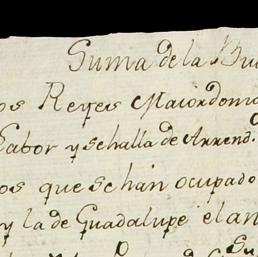 Suma de la Bu
os Reyes Maiordomo
Labor y se halla de Arrend.
os que se han ocupado
y la de Guadalupe el an